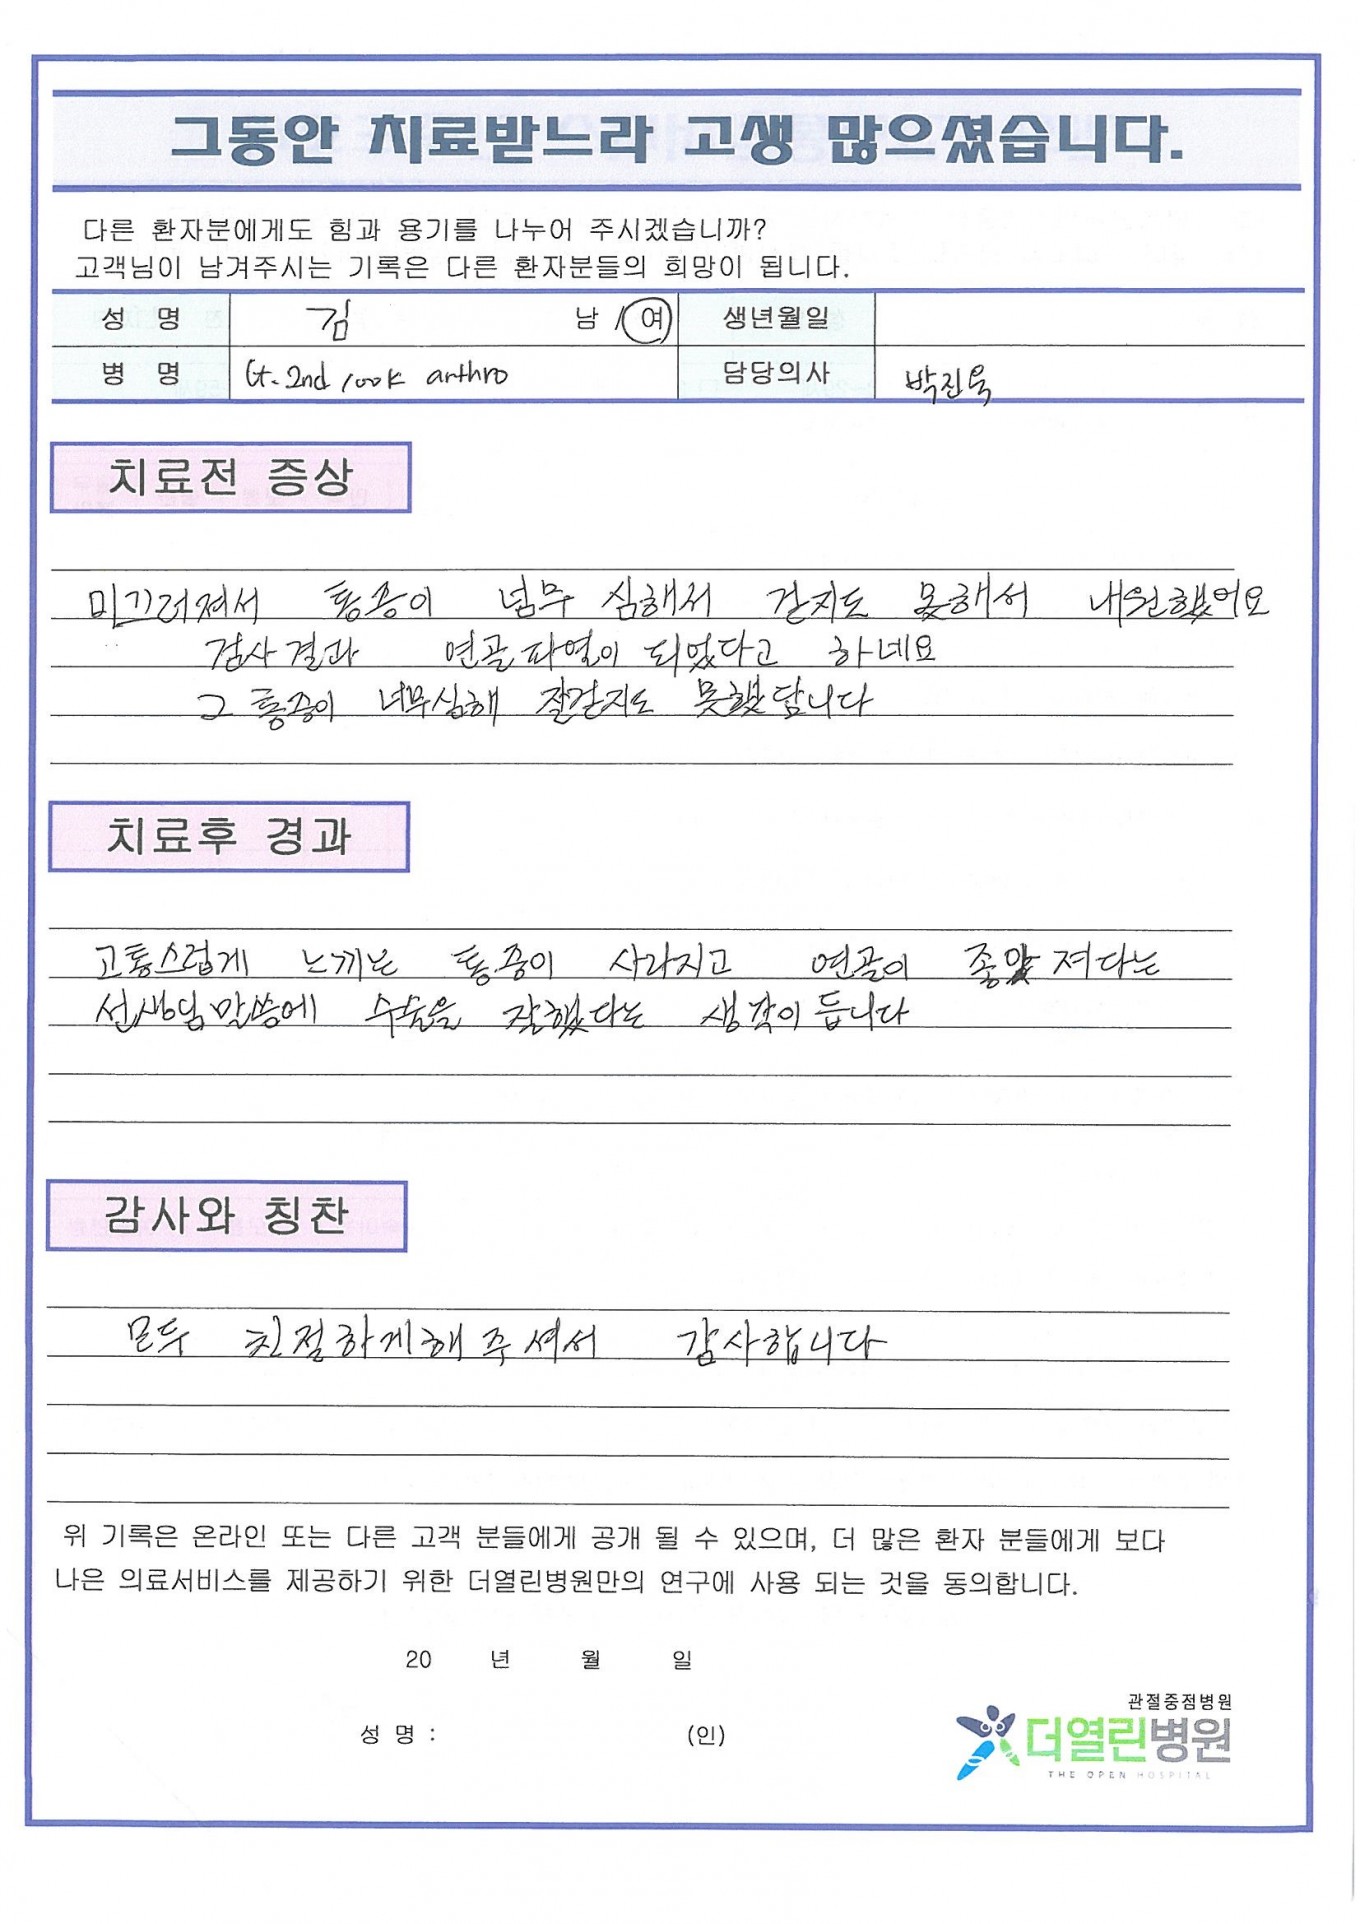 그동안 치료받느라 고생 많으셨습니다.
다른 환자분에게도 힘과 용기를 나누어 주시겠습니까?
고객님이 남겨주시는 기록은 다른 환자분들의 희망이 됩니다.
성 명 김 남 / 여 생년월일
병 명 Lt. 2nd look arthro 담당의사 박진욱
치료전 증상
미끄러져서 통증이 넘무 심해서 걷지도 못해서 내원했어요
검사결과 연골파열이 되었다고 하네요
그 통증이 너무심해 잘걷지도 못했답니다
치료후 경과
고통스럽게 느끼는 통증이 사라지고 연골이 좋아져다는
선생님말씀에 수술을 잘했다는 생각이 듭니다
감사와 칭찬
모두 친절하게해주셔서 감사합니다
위 기록은 온라인 또는 다른 고객 분들에게 공개 될 수 있으며, 더 많은 환자 분들에게 보다
나은 의료서비스를 제공하기 위한 더열린병원만의 연구에 사용 되는 것을 동의합니다.
20 년 월 일
성 명 : (인)
관절중점병원
더열린병원
THE OPEN HOSPITAL